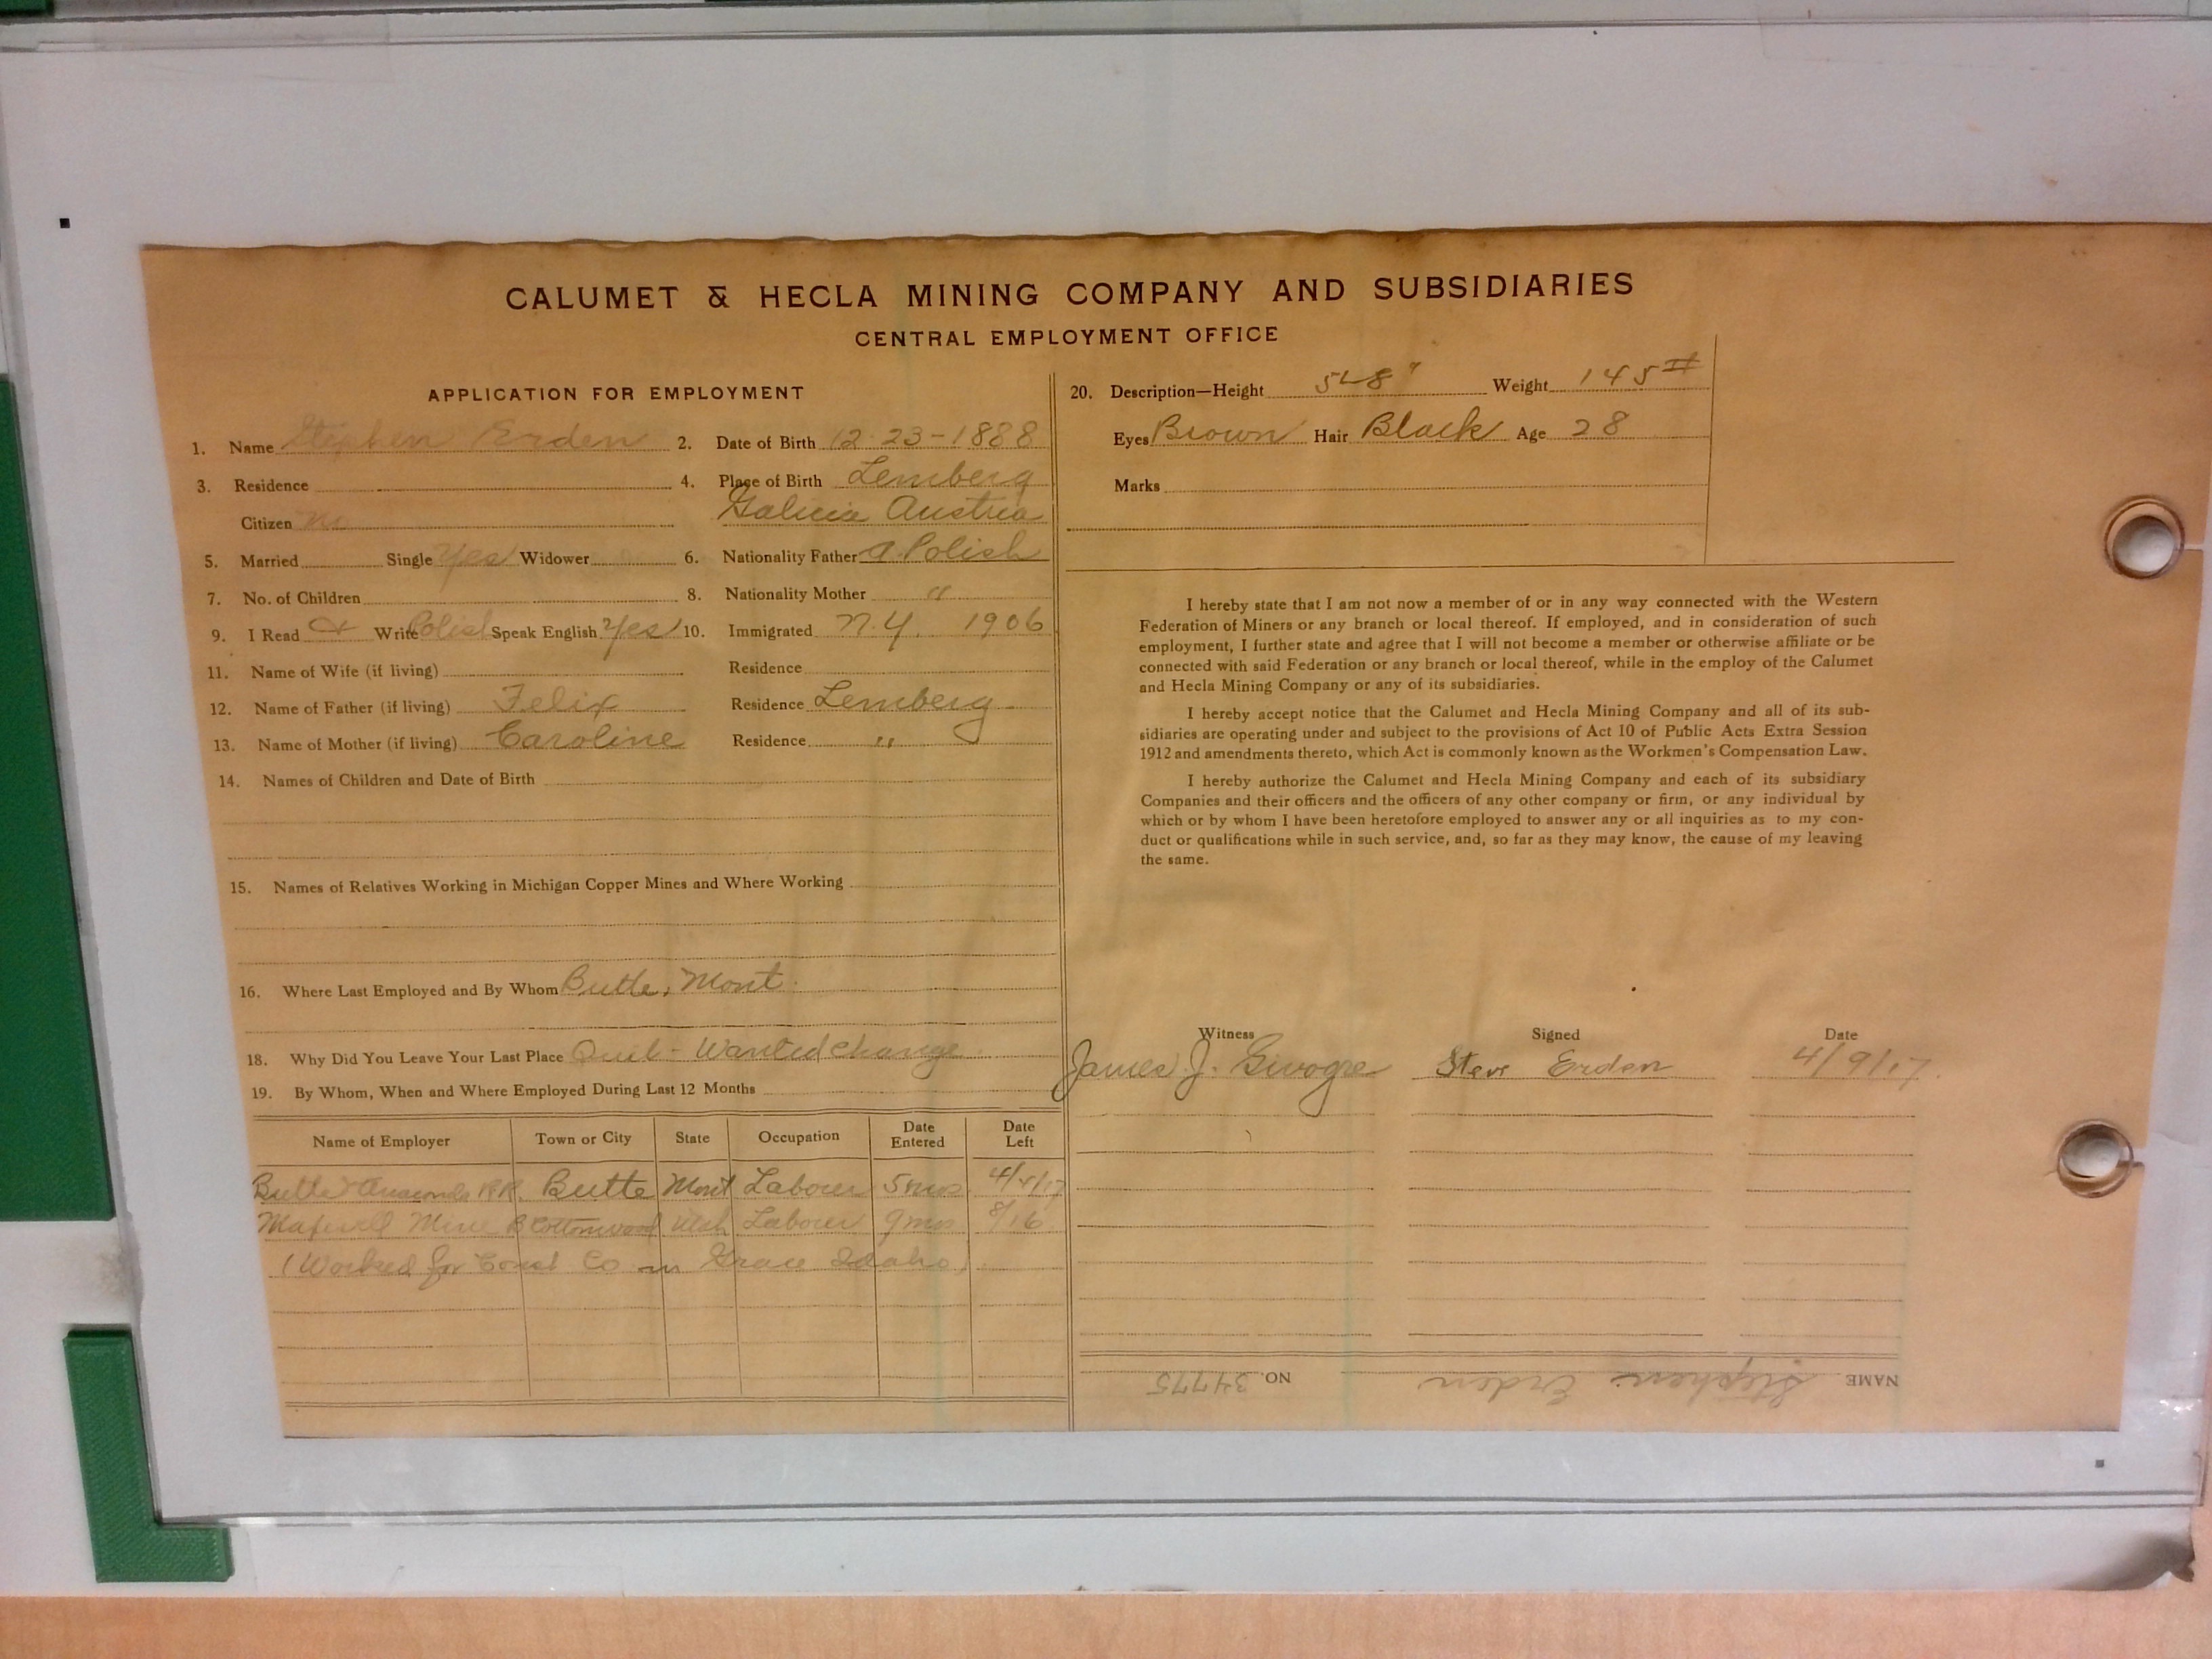 CALUMET & HECLA MINING COMPANY AND SUBSIDIARIES
CENTRAL EMPLOYMENT OFFICE
APPLICATION FOR EMPLOYMENT
1. Name Stephen Erden 2. Date of Birth 12-23-1888
3. Residence 4. Place of Birth Lemberg
Citizen Galicia Austria
5. Married Single Yes Widower 6. Nationality Father A. Polish
7. No. of Children 8. Nationality Mother "
9. I Read & Write Polish Speak English Yes 10. Immigrated N.Y. 1906
11. Name of Wife (if living) Residence
12. Name of Father (if living) Felix Residence Lemberg
13. Name of Mother (if living) Caroline Residence "
14. Names of Children and Date of Birth
15. Names of Relatives Working in Michigan Copper Mines and Where Working
16. Where Last Employed and By Whom Butte, Mont.
18. Why Did You Leave Your Last Place Quit - Wanted Change
19. By Whom, When and Where Employed During Last 12 Months
Name of Employer Town or City State Occupation Date Entered Date Left
Butte Anaconda RR. Butte Mont Laborer 5 mos 4/4/17
Mine Cottonwood Utah Laborer 9 mos 8/16
(Worked for Const Co in Grace Idaho)
20. Description—Height 5' 8" Weight 145 #
Eyes Brown Hair Black Age 28
Marks
I hereby state that I am not now a member of or in any way connected with the Western
Federation of Miners or any branch or local thereof. If employed, and in consideration of such
employment, I further state and agree that I will not become a member or otherwise affiliate or be
connected with said Federation or any branch or local thereof, while in the employ of the Calumet
and Hecla Mining Company or any of its subsidiaries.
I hereby accept notice that the Calumet and Hecla Mining Company and all of its sub-
sidiaries are operating under and subject to the provisions of Act 10 of Public Acts Extra Session
1912 and amendments thereto, which Act is commonly known as the Workmen's Compensation Law.
I hereby authorize the Calumet and Hecla Mining Company and each of its subsidiary
Companies and their officers and the officers of any other company or firm, or any individual by
which or by whom I have been heretofore employed to answer any or all inquiries as to my con-
duct or qualifications while in such service, and, so far as they may know, the cause of my leaving
the same.
Witness Signed Date
James J. Steve Erden 4/9/17.
NAME Stephen Erden NO. 34775